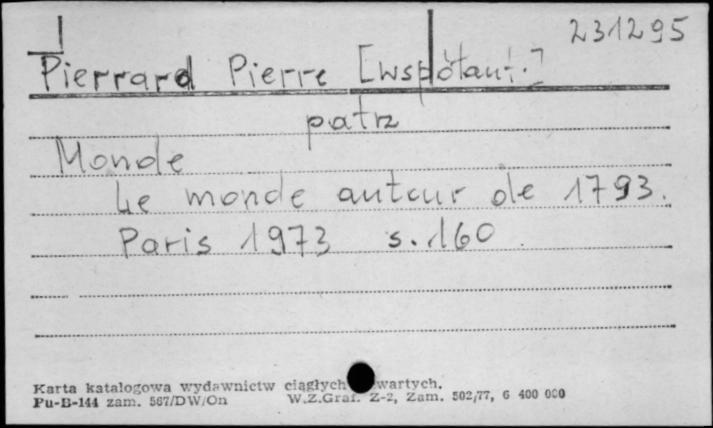 231295
Pierrard Pierre [współaut.]
patrz
Monde
Le monde autour de 1793.
Paris 1973 s. 160
Karta katalogowa wydawnictw ciągłych wartych.
Pu-B-144 zam. 567/DW/On W.Z.Graf. Z-2, Zam. 502/77, 6 400 000